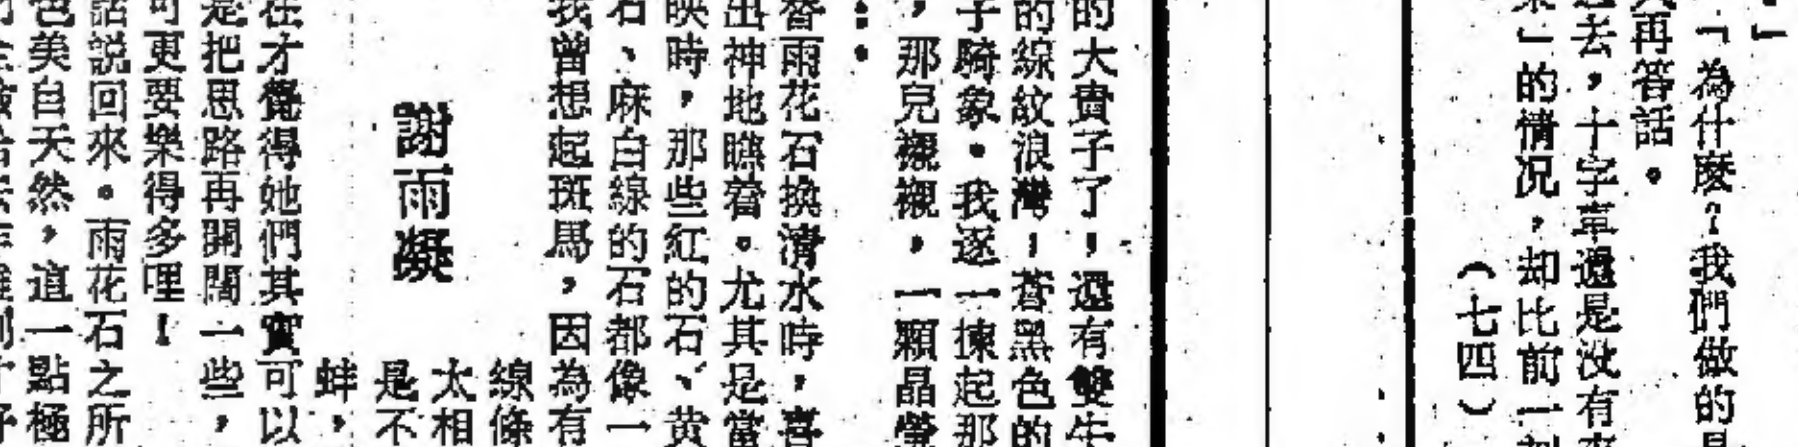 」
「為什麼？我們做的
再答話。
去，十字車還是没有
」的情况，却比前一
（七四）
的大貴子了！還有雙生
的線紋浪灣！蒼黑色的
子騎象。我逐一揀起那
，那兒襯襯，一顆晶瑩
：
替雨花石換清水時，喜
出神地瞧着。尤其是當
映時，那些紅的石、黄
石、麻白線的石都像一
我曾想起斑馬，因為有
線條
太相
是不
蚌，
謝雨凝
在才覺得她們其實可以
是把思路再開闊一些，
可更要樂得多哩！
話説回來。雨花石之所
色美自天然，這一點極